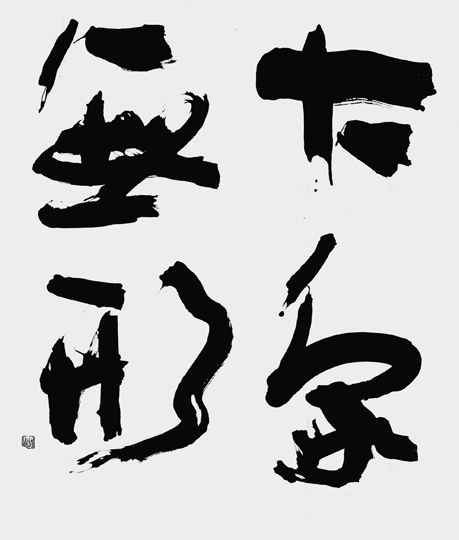 大象
無形